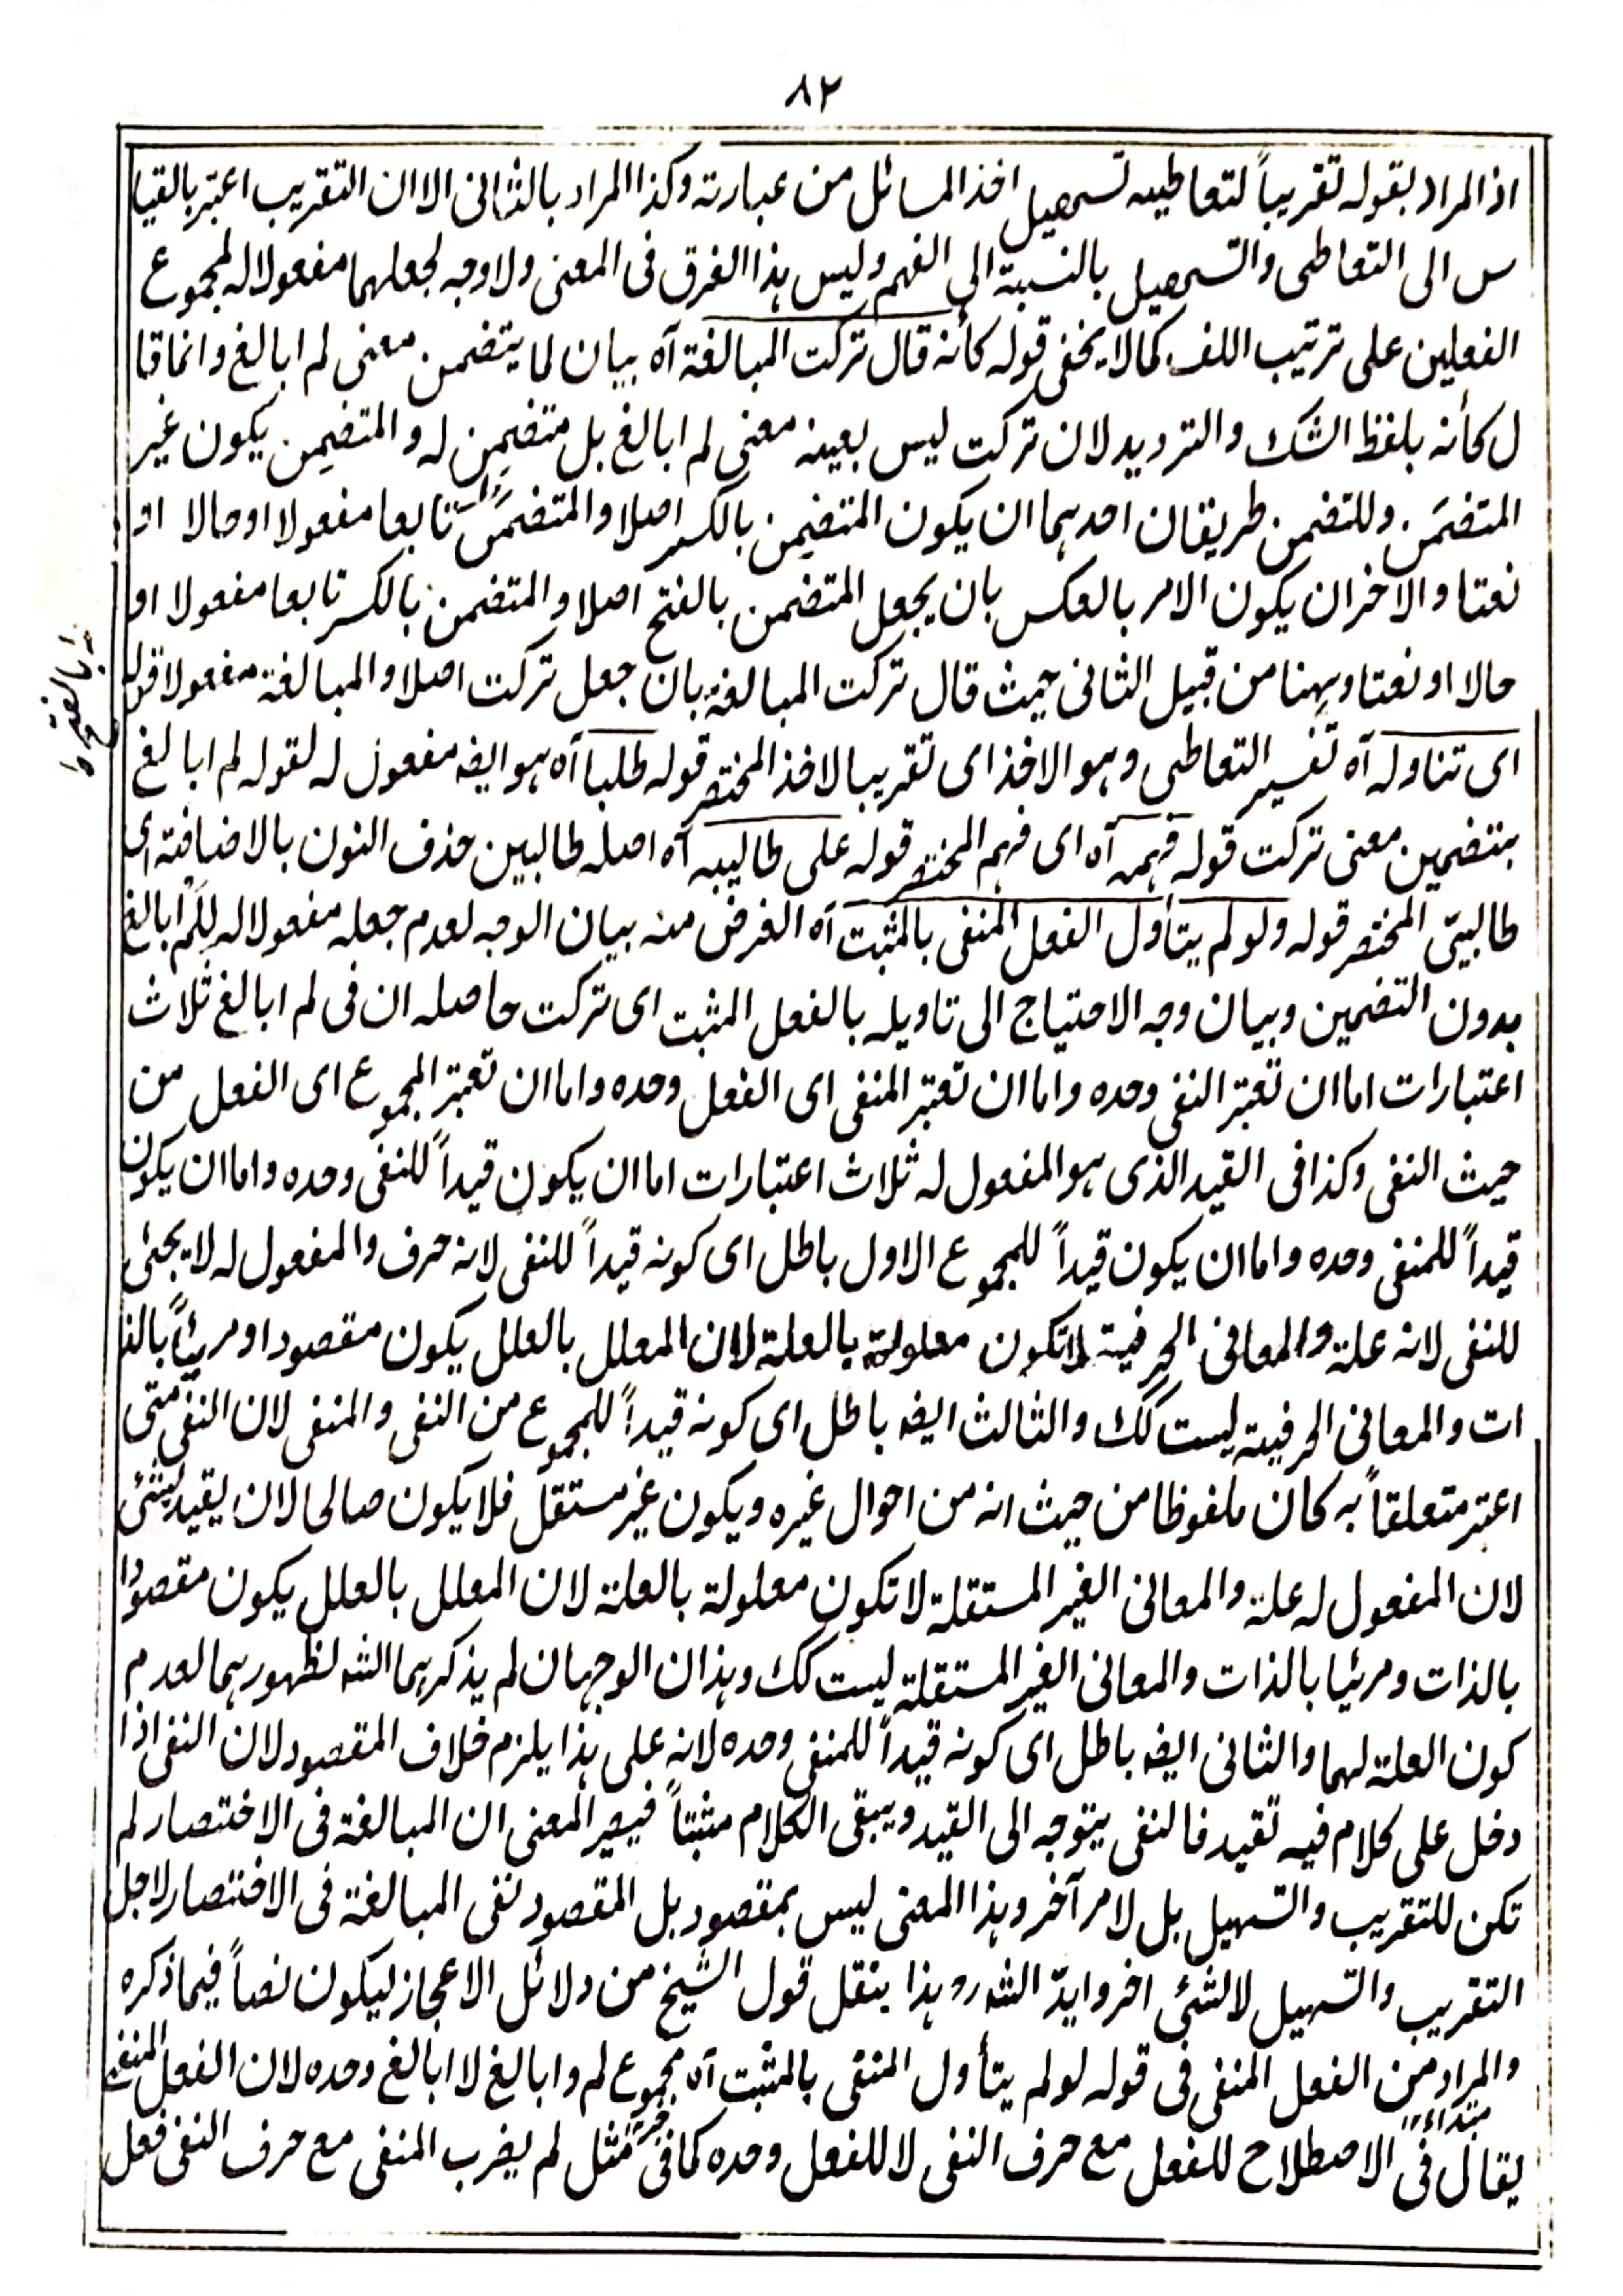 ٨٢
اذ المراد بقوله تقريباً لتعاطيه تسهيل اخذ المسائل من عبارته وكذا المراد بالثانى الا ان التقريب اعتبر بالقيا
س الى التعاطى والتسهيل بالنسبة الى الفهم وليس هذا الفرق فى المعنى ولا وجه لجعلهما مفعولا له لمجموع
الفعلين على ترتيب اللف كما لا يخفى قوله كأنه قال تركت المبالغة آه بيان لما يتضمن معنى لم ابالغ وانما قا
ل كأنه بلفظ الشك والترديد لان تركت ليس بعينه معنى لم ابالغ بل متضمِن له والمتضمِن يكون غير
المتضمَن وللتضمن طريقان احدهما ان يكون المتضمِن بالكسر اصلا والمتضمَن تابعا مفعولا او حالا او
نعتا والاخر ان يكون الامر بالعكس بان يجعل المتضمن بالفتح اصلا والمتضمن بالكسر تابعا مفعولا او
حالا او نعتا وههنا من قبيل الثانى حيث قال تركت المبالغة بان جعل تركت اصلا والمبالغة مفعولا قوله
اى تناوله آه تفسير التعاطى وهو الاخذ اى تقريبا لاخذ المختصر قوله طلبا آه هو ايضہ مفعول له لقوله لم ابالغ
بتضمين معنى تركت قوله فهمه آه اى فهم المختصر قوله على طالبيه آه اصله طالبين حذف النون بالاضافة اى
طالبىّ المختصر قوله ولو لم يتأول الفعل المنفى بالمثبت آه الغرض منه بيان الوجه لعدم جعله مفعولا له للم ابالغ
بدون التضمين وبيان وجه الاحتياج الى تاويله بالفعل المثبت اى تركت حاصله ان فى لم ابالغ ثلاث
اعتبارات اما ان تعتبر النفى وحده واما ان تعتبر المنفى اى الفعل وحده واما ان تعتبر المجموع اى الفعل من
حيث النفى وكذا فى القيد الذى هو المفعول له ثلاث اعتبارات اما ان يكون قيداً للنفى وحده واما ان يكون
قيداً للمنفى وحده واما ان يكون قيداً للمجموع الاول باطل اى كونه قيداً للنفى لانه حرف والمفعول له لا يجئى
للنفى لانه علة والمعانى الحرفية لا تكون معلولة بالعلة لان المعلل بالعلل يكون مقصودا ومرئياً بالذ
ات والمعانى الحرفية ليست كك والثالث ايضہ باطل اى كونه قيداً للمجموع من النفى والمنفى لان النفى متى
اعتبر متعلقاً به كان ملفوظا من حيث انه من احوال غيره ويكون غير مستقل فلا يكون صالحا لان يقيد بشئى
لان المفعول له علة والمعانى الغير المستقلة لا تكون معلولة بالعلة لان المعلل بالعلل يكون مقصودا
بالذات ومرئيا بالذات والمعانى الغير المستقلة ليست كك وهذان الوجهان لم يذكرهما الشہ لظهورهما لعدم
كون العلة لهما والثانى ايضہ باطل اى كونه قيداً للمنفى وحده لانه على هذا يلزم خلاف المقصود لان النفى اذا
دخل على كلام فيه تقيد فالنفى يتوجه الى القيد ويبقى الكلام مثبتاً فيصير المعنى ان المبالغة فى الاختصار لم
تكن للتقريب والتسهيل بل لامر آخر وهذا المعنى ليس بمقصود بل المقصود نفى المبالغة فى الاختصار لاجل
التقريب والتسهيل لا لشئى اخر وايدّ الشہ رد هذا بنقل قول الشيخ من دلائل الاعجاز ليكون نصاً فيما ذكره
والمراد من الفعل المنفى فى قوله لو لم يتأول المنفى بالمثبت آه مجموع لم وابالغ لا ابالغ وحده لان الفعل المنفى
مبتداء
يقال فى الاصطلاح للفعل مع حرف النفى لا للفعل وحده كما فى مثل لم يضرب المنفى مع حرف النفى فعل